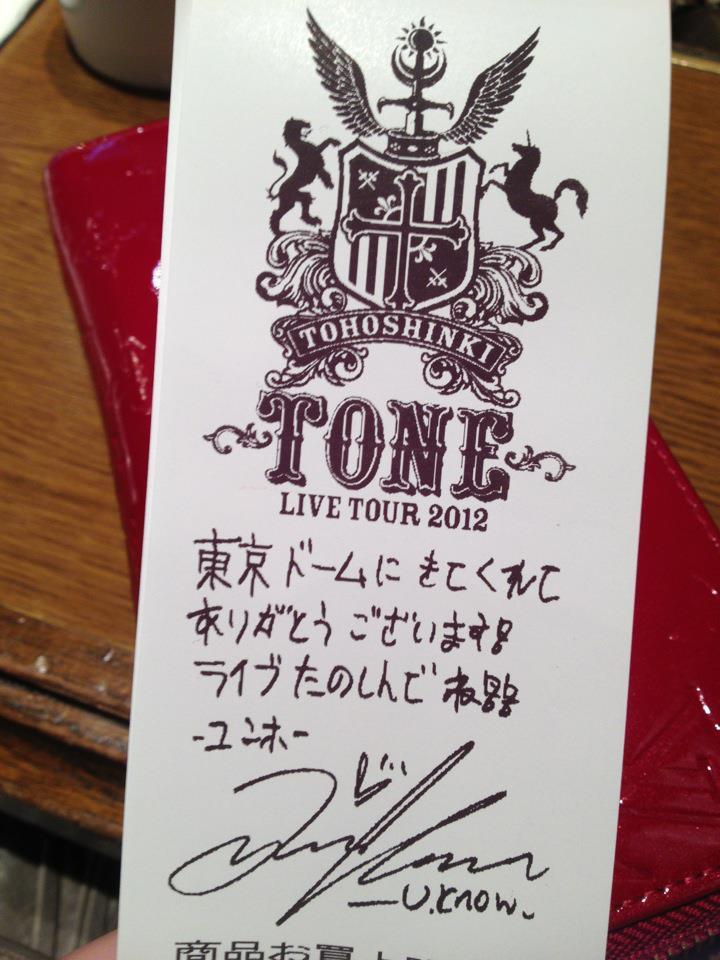 TOHOSHINKI
TONE
LIVE TOUR 2012
東京ドームに きてくれて
ありがとうございます!!
ライブたのしんでね!!!
-ユンホ-
U.know.
商品お買上